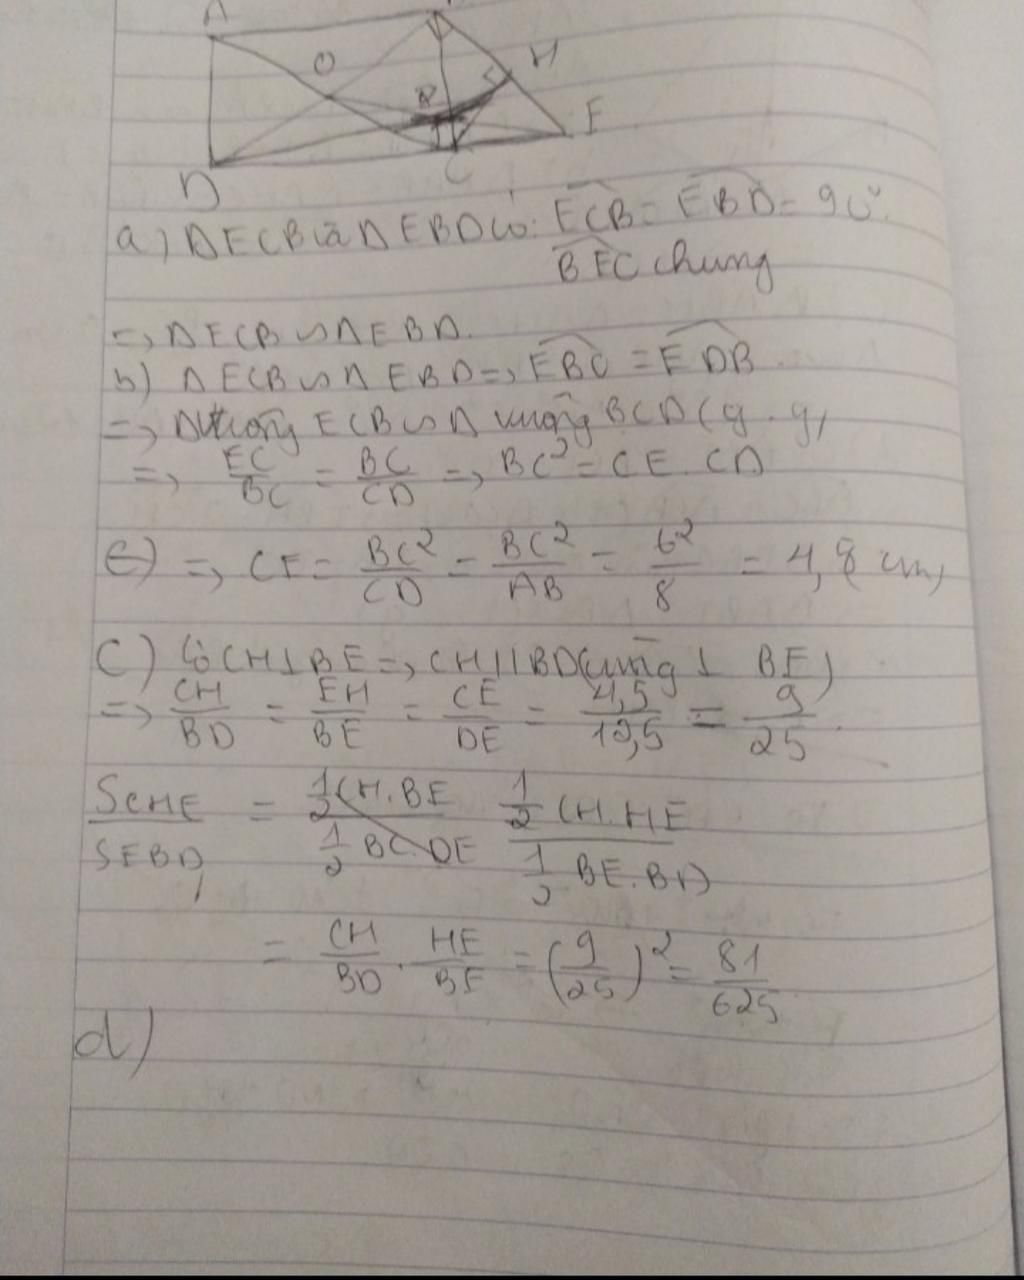 A
O
H
R
E
D
C
a) ΔECB và ΔEBD có: ECB = EBD = 90°.
BEC chung
=> ΔECB ∽ ΔEBD.
b) ΔECB ∽ ΔEBD => EBC = EDB
=> Δvuông ECB ∽ Δ vuông BCD (g.g)
=> EC/BC = BC/CD => BC² = CE.CD
e) => CE = BC²/CD = BC²/AB = 6²/8 = 4,8 cm
c) Có CH⊥BE => CH//BD (cùng ⊥ BE)
=> CH/BD = EH/BE = CE/DE = 4,5/12,5 = 9/25.
SCHE/SEBD = 1/2 CH.BE / 1/2 BC.DE 1/2 CH.HE / 1/2 BE.BD
= CH/BD . HE/BE = (9/25)² = 81/625
d)